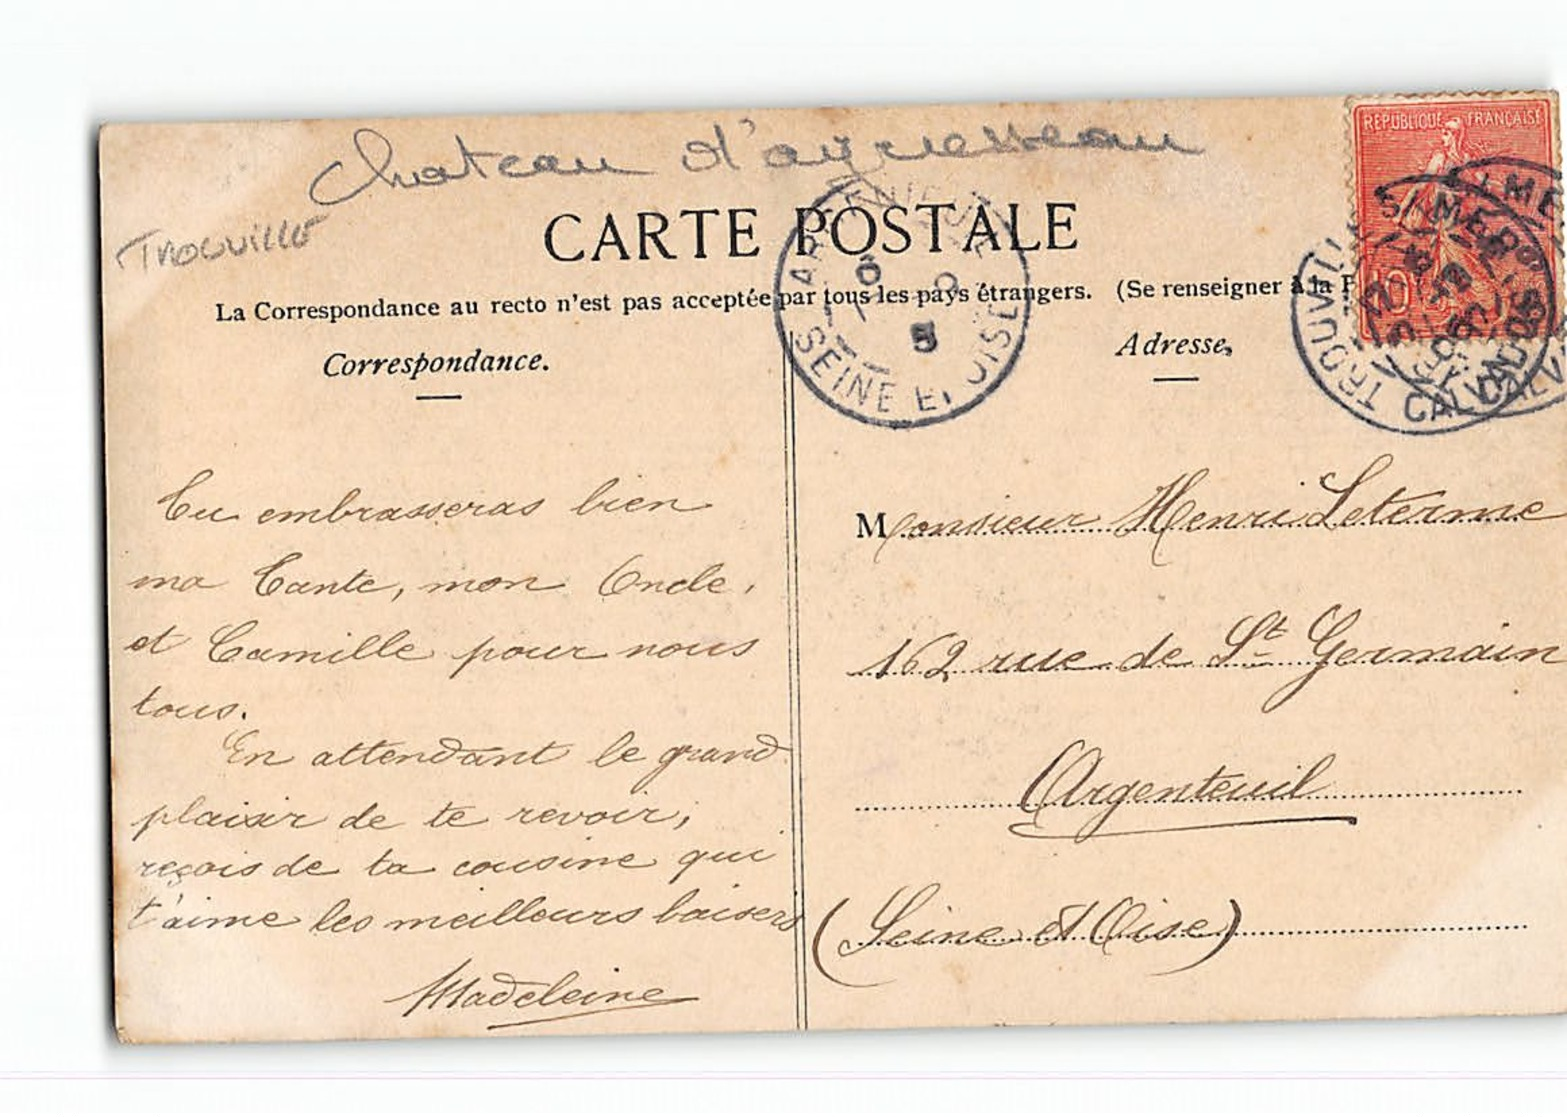 Chateau d'aguesseau
Trouville
CARTE POSTALE
La Correspondance au recto n'est pas acceptée par tous les pays étrangers. (Se renseigner à la P
Correspondance.
Adresse,
Tu embrasseras bien
ma Tante, mon Oncle,
et Camille pour nous
tous.
En attendant le grand
plaisir de te revoir,
reçois de ta cousine qui
t'aime les meilleurs baisers
Madeleine
Monsieur Henri Leterme
162 rue de St Germain
Argenteuil
(Seine et Oise)
REPUBLIQUE FRANÇAISE
10
TROUVILLE S/ MER
CALVADOS
SEINE ET OISE